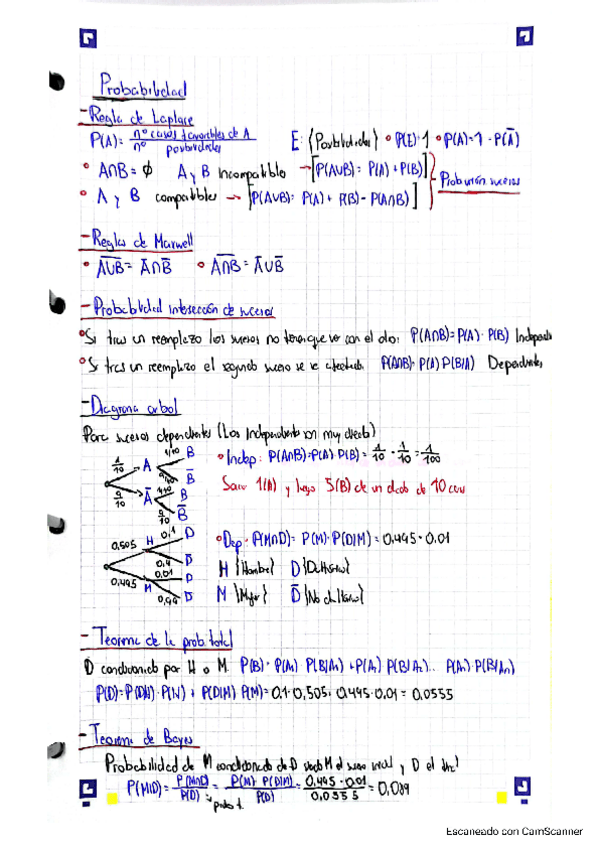 Probabilidad
- Regla de Laplace
P(A) = nº casos favorables de A / nº posibilidades
E: {Posibilidades} • P(E)=1 • P(A)=1 - P(Ā)
• A∩B = ∅ A y B incompatibles → [P(A∪B) = P(A) + P(B)]
• A y B compatibles → [P(A∪B) = P(A) + P(B) - P(A∩B)]
Prob unión sucesos
- Reglas de Marwell
• \overline{A∪B} = Ā∩B̄ • \overline{A∩B} = Ā∪B̄
- Probabilidad intersección de sucesos
• Si tras un reemplazo los sucesos no tienen que ver con el otro: P(A∩B) = P(A) · P(B)
• Si tras un reemplazo el segundo suceso se ve afectado: P(A∩B) = P(A) P(B/A) Dependientes
- Diagrama árbol
Para sucesos dependientes (Los independientes son muy)
1/10 A 1/10 B
9/10 B̄
9/10 Ā 1/10 B
9/10 B̄
• Indep: P(A∩B) = P(A) P(B) = 1/10 · 1/10 = 1/100
Sacar 1(A) y luego 5(B) de un dado de 10 caras
0,505 H 0,1 D
D̄
0,495 M 0,01 D
0,99 D̄
• Dep: P(M∩D) = P(M) · P(D/M) = 0,495 · 0,01
H {Hombre} D {Daltónico}
M {Mujer} D̄ {No daltónico}
- Teorema de la prob total
D condicionado por H o M. P(B) = P(A₁) P(B/A₁) + P(A₂) P(B/A₂)... P(Aₙ) · P(B/Aₙ)
P(D) = P(D/H) · P(H) + P(D/M) P(M) = 0,1 · 0,505 + 0,495 · 0,01 = 0,0555
- Teorema de Bayes
Probabilidad de M condicionado de D siendo M el suceso inicial y D el
P(M/D) = P(M∩D) / P(D) = P(M) · P(D/M) / P(D) = 0,495 · 0,01 / 0,0555 = 0,089
Escaneado con CamScanner